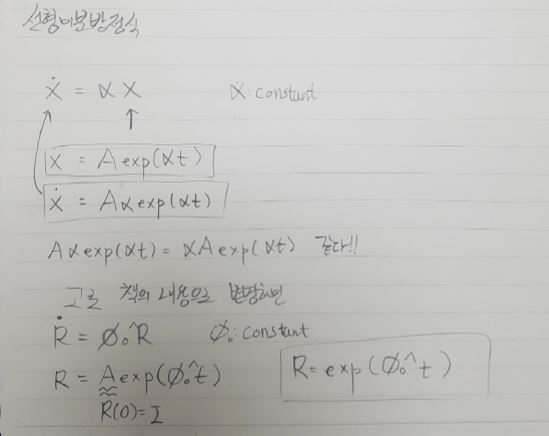 선형미분방정식
ẋ = αx α: constant
x = A exp(αt)
ẋ = Aα exp(αt)
Aα exp(αt) = αA exp(αt) 같다!!
고로 책의 내용으로
Ṙ = ϕ₀^R ϕ₀: constant
R = A exp(ϕ₀^t) R = exp(ϕ₀^t)
R(0)=I